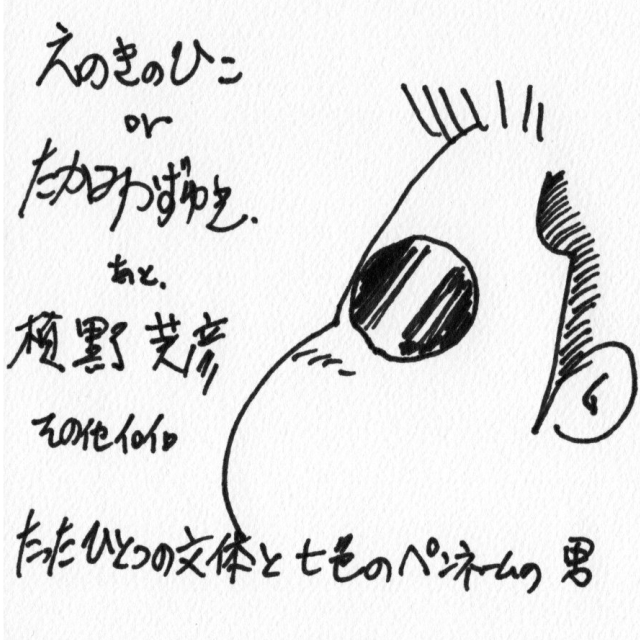 えのきのひこ
or
たかはわずゆき.
あと、
槙野芝彦
その他イロイロ
たったひとつの文体と七色のペンネームの男